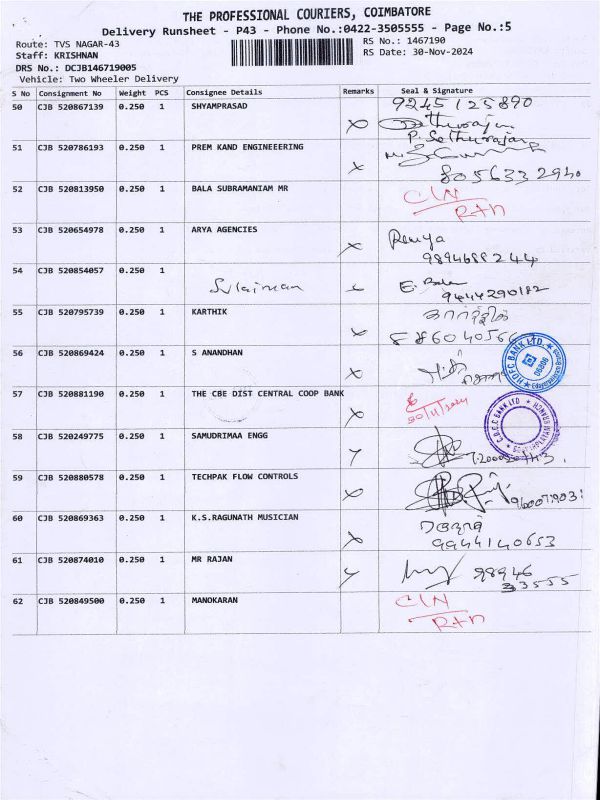 THE PROFESSIONAL COURIERS, COIMBATORE
Delivery Runsheet - P43 - Phone No.:0422-3505555 - Page No.:5
Route: TVS NAGAR-43
RS No.: 1467190
Staff: KRISHNAN
RS Date: 30-Nov-2024
DRS No.: DCJB146719005
Vehicle: Two Wheeler Delivery
S No Consignment No Weight PCS Consignee Details Remarks Seal & Signature
50 CJB 520867139 0.250 1 SHYAMPRASAD 9245125890
P. Sethurajan
51 CJB 520786193 0.250 1 PREM KAND ENGINEEERING
8056332940
52 CJB 520813950 0.250 1 BALA SUBRAMANIAM MR C/N
RTN
53 CJB 520654978 0.250 1 ARYA AGENCIES Renya
9894688244
54 CJB 520854057 0.250 1 Sulaiman E. Bala
9444290182
55 CJB 520795739 0.250 1 KARTHIK கார்த்திக்
56 CJB 520869424 0.250 1 S ANANDHAN HDFC BANK LTD.
57 CJB 520881190 0.250 1 THE CBE DIST CENTRAL COOP BANK
30/11/2024
C.D.C.C BANK LTD
58 CJB 520249775 0.250 1 SAMUDRIMAA ENGG
59 CJB 520880578 0.250 1 TECHPAK FLOW CONTROLS
60 CJB 520869363 0.250 1 K.S.RAGUNATH MUSICIAN
9944140653
61 CJB 520874010 0.250 1 MR RAJAN 98946
33555
62 CJB 520849500 0.250 1 MANOKARAN C/N
RTN